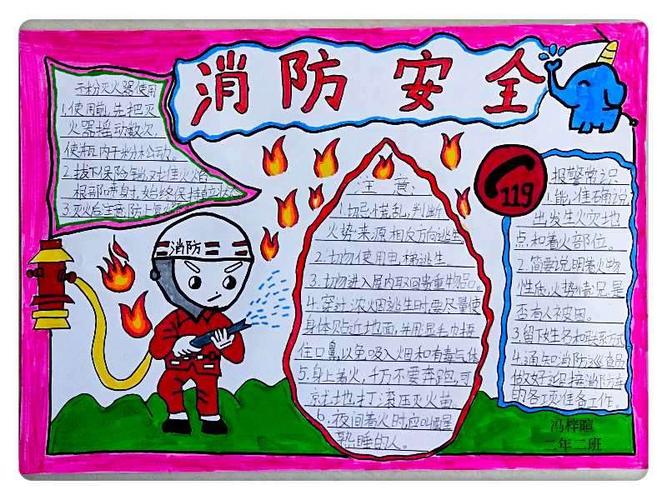 消防安全
干粉灭火器使用
1.使用前,先把灭
火器摇动数次,
使瓶内干粉松动。
2.拔下保险销,对准火焰
根部喷射,始终保持
3.灭火后注意防止复
消防
注意:
1.切忌慌乱,判断
火势来源,相反方向逃生
2.切勿使用电梯逃生
3.切勿进入屋内取回贵重物品
4.穿过浓烟逃生时,要尽量使
身体贴近地面,并用湿毛巾捂
住口鼻,以免吸入烟和有毒气体
5.身上着火,千万不要奔跑,可
就地打滚压灭火苗
6.夜间着火时,应叫醒
熟睡的人。
119
报警常识
1.能准确说
出发生火灾地
点和着火部位。
2.简要说明着火物
性质,火势情况,是
否有人被困。
3.留下姓名和联系方式
4.通知消防巡查员
做好迎接消防车
的各项准备工作。
冯梓暄
二年二班